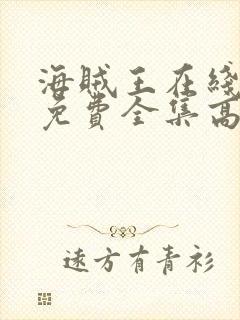 海賊王在綫
免費全集高
遠方有青衫